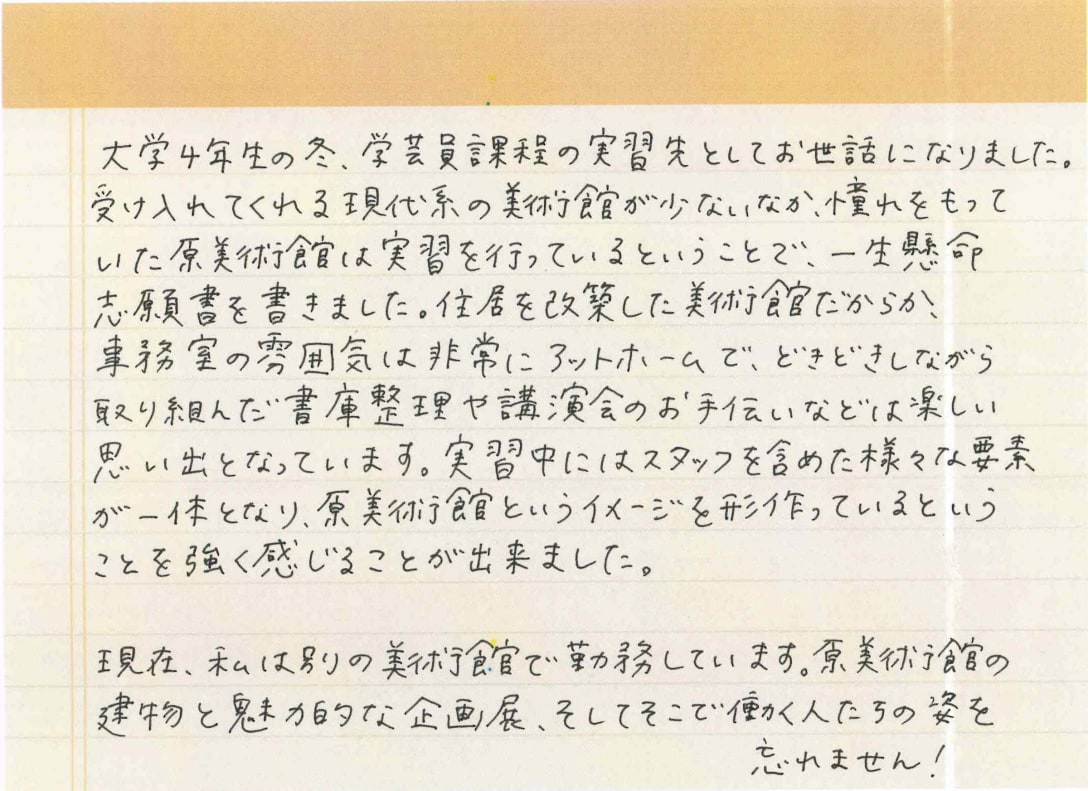 大学4年生の冬、学芸員課程の実習先としてお世話になりました。
受け入れてくれる現代系の美術館が少ないなか、憧れをもって
いた原美術館は実習を行っているということで、一生懸命
志願書を書きました。住居を改築した美術館だからか、
事務室の雰囲気は非常にアットホームで、どきどきしながら
取り組んだ書庫整理や講演会のお手伝いなどは楽しい
思い出となっています。実習中にはスタッフを含めた様々な要素
が一体となり、原美術館というイメージを形作っているという
ことを強く感じることが出来ました。
現在、私は別の美術館で勤務しています。原美術館の
建物と魅力的な企画展、そしてそこで働く人たちの姿を
忘れません!